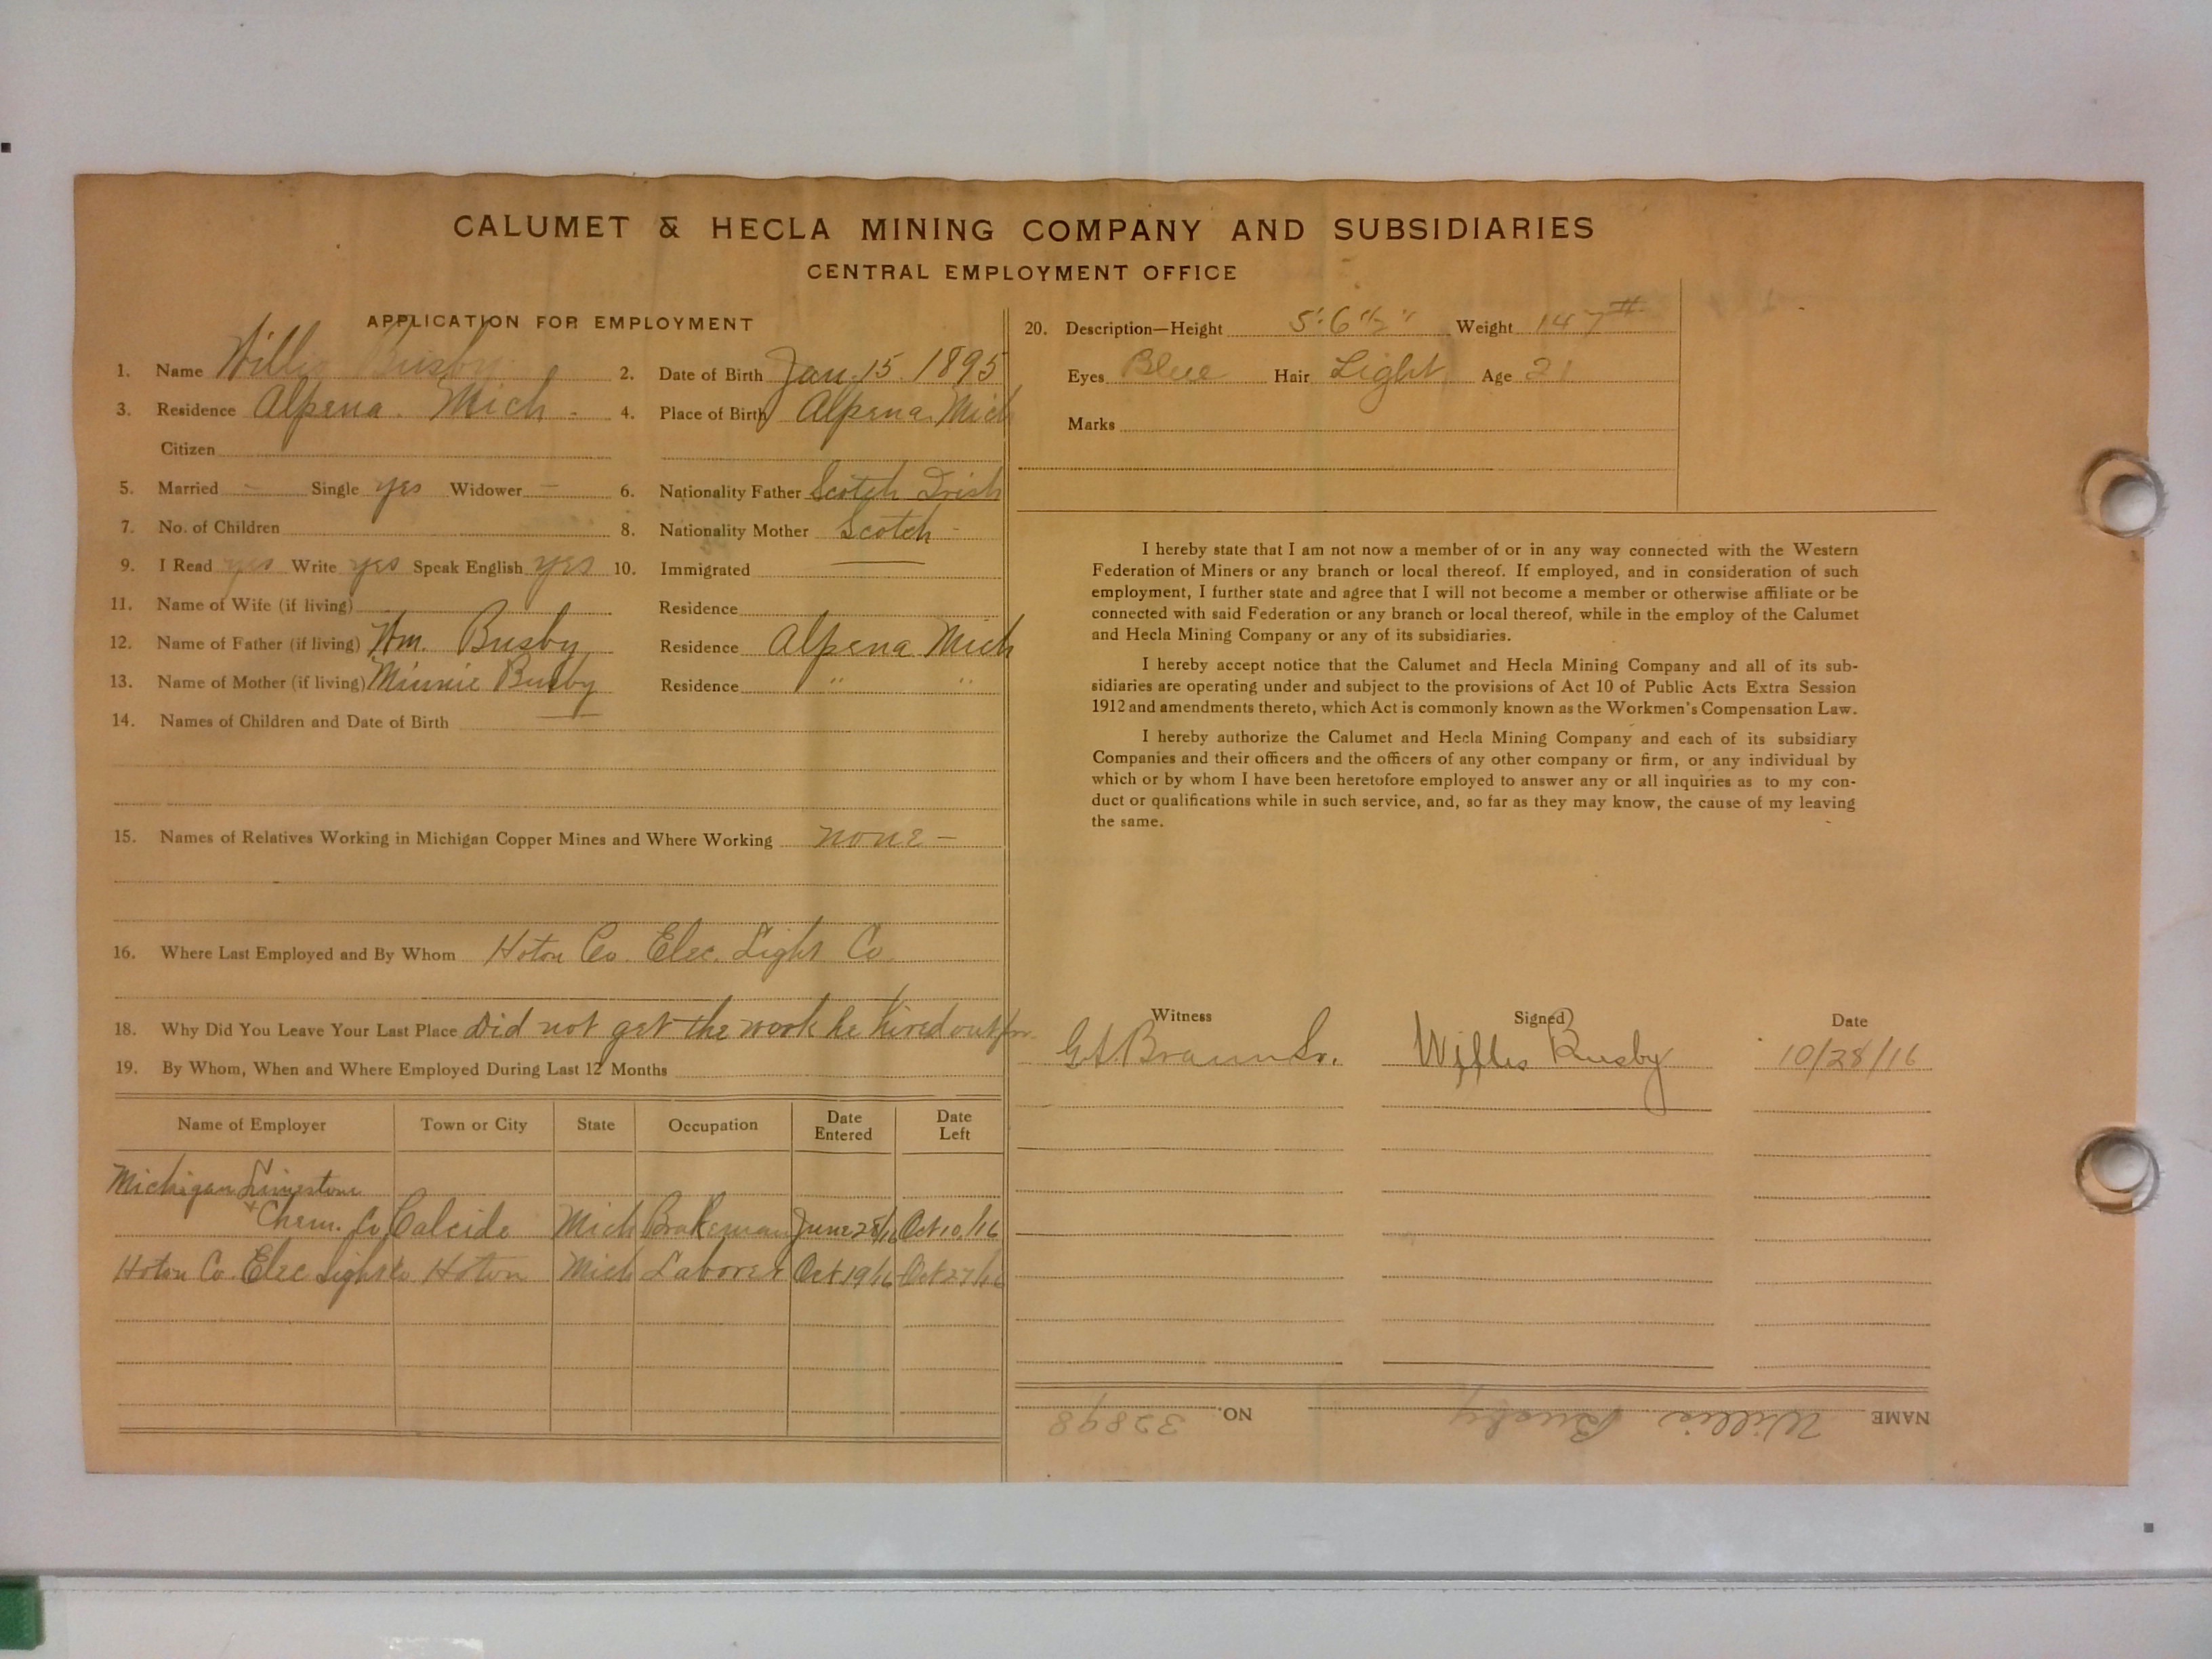 CALUMET & HECLA MINING COMPANY AND SUBSIDIARIES
CENTRAL EMPLOYMENT OFFICE
APPLICATION FOR EMPLOYMENT
1. Name Willis Busby 2. Date of Birth Jan. 15. 1895
3. Residence Alpena. Mich - 4. Place of Birth Alpena. Mich
Citizen
5. Married - Single yes Widower - 6. Nationality Father Scotch Irish
7. No. of Children 8. Nationality Mother Scotch -
9. I Read yes Write yes Speak English yes 10. Immigrated
11. Name of Wife (if living) Residence
12. Name of Father (if living) Wm. Busby Residence Alpena Mich
13. Name of Mother (if living) Minnie Busby Residence " "
14. Names of Children and Date of Birth
15. Names of Relatives Working in Michigan Copper Mines and Where Working none -
16. Where Last Employed and By Whom Hoton Co. Elec. Light Co
18. Why Did You Leave Your Last Place Did not get the work he hired out for
19. By Whom, When and Where Employed During Last 12 Months
Name of Employer Town or City State Occupation Date Entered Date Left
Michigan Limestone
+ Chem. Co Calcide Mich Brakeman June 28/16 Oct 10/16
Hoton Co. Elec Light Co Hoton Mich Laborer Oct 19/16 Oct 27/16
20. Description—Height 5' 6 1/2" Weight 147 #
Eyes Blue Hair Light Age 21
Marks
I hereby state that I am not now a member of or in any way connected with the Western
Federation of Miners or any branch or local thereof. If employed, and in consideration of such
employment, I further state and agree that I will not become a member or otherwise affiliate or be
connected with said Federation or any branch or local thereof, while in the employ of the Calumet
and Hecla Mining Company or any of its subsidiaries.
I hereby accept notice that the Calumet and Hecla Mining Company and all of its sub-
sidiaries are operating under and subject to the provisions of Act 10 of Public Acts Extra Session
1912 and amendments thereto, which Act is commonly known as the Workmen's Compensation Law.
I hereby authorize the Calumet and Hecla Mining Company and each of its subsidiary
Companies and their officers and the officers of any other company or firm, or any individual by
which or by whom I have been heretofore employed to answer any or all inquiries as to my con-
duct or qualifications while in such service, and, so far as they may know, the cause of my leaving
the same.
Witness Signed Date
Willis Busby 10/28/16
NAME Willis Busby NO. 32898